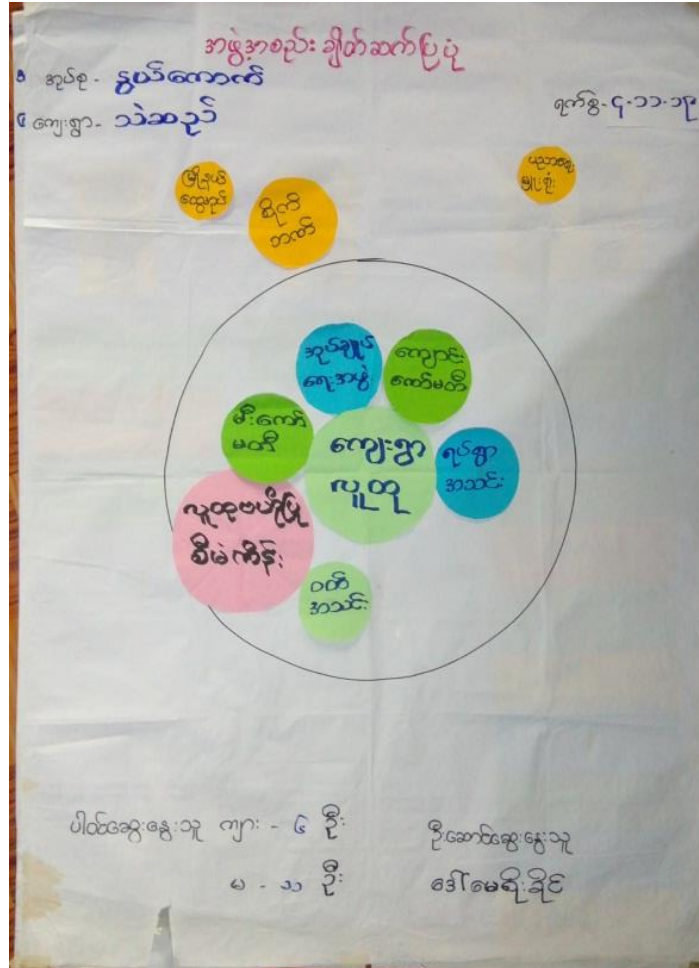 အဖွဲ့အစည်း ချိတ်ဆက်ပြပုံ
အုပ်စု - နွယ်ကောက်
ကျေးရွာ - သဲဆည်
ရက်စွဲ - ၄-၁၁-၁၉
မြို့နယ်
ထွေအုပ်
စိုက်
ဘဏ်
ပညာရေး
မှူးရုံး
အုပ်ချုပ်
ရေးအဖွဲ့
ကျောင်း
ကော်မတီ
မီးကော်
မတီ
ကျေးရွာ
လူထု
ရပ်ရွာ
အသင်း
လူထုဗဟိုပြု
စီမံကိန်း
ဝတ်
အသင်း
ပါဝင်ဆွေးနွေးသူ ကျား - ၆ ဦး
မ - ၁၁ ဦး
ဦးဆောင်ဆွေးနွေးသူ
ဒေါ်မေရီးခိုင်